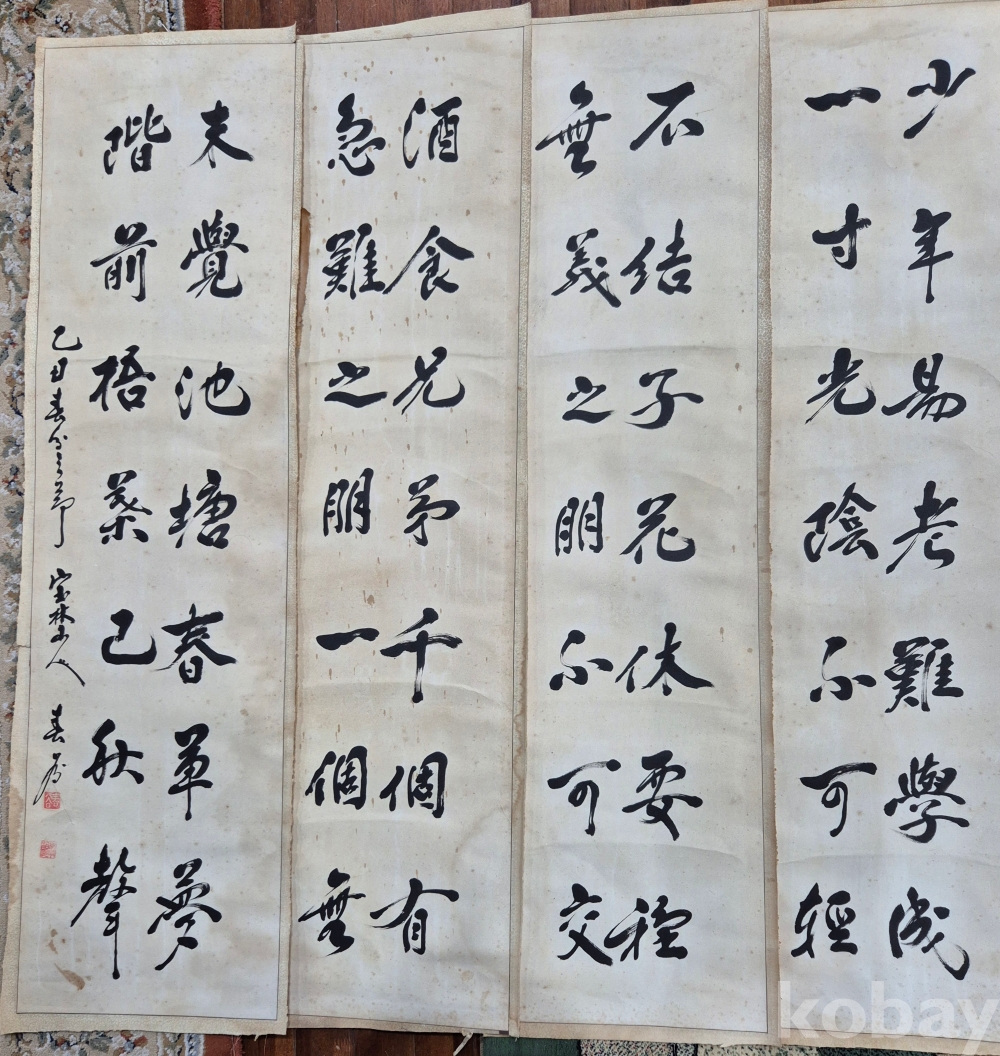 少年易老難學成
一寸光陰不可輕
不結子花休要種
無義之朋不可交
酒食兄弟千個有
急難之朋一個無
未覺池塘春草夢
階前梧葉已秋聲
乙丑春分之節 宝林山人 春
kobay